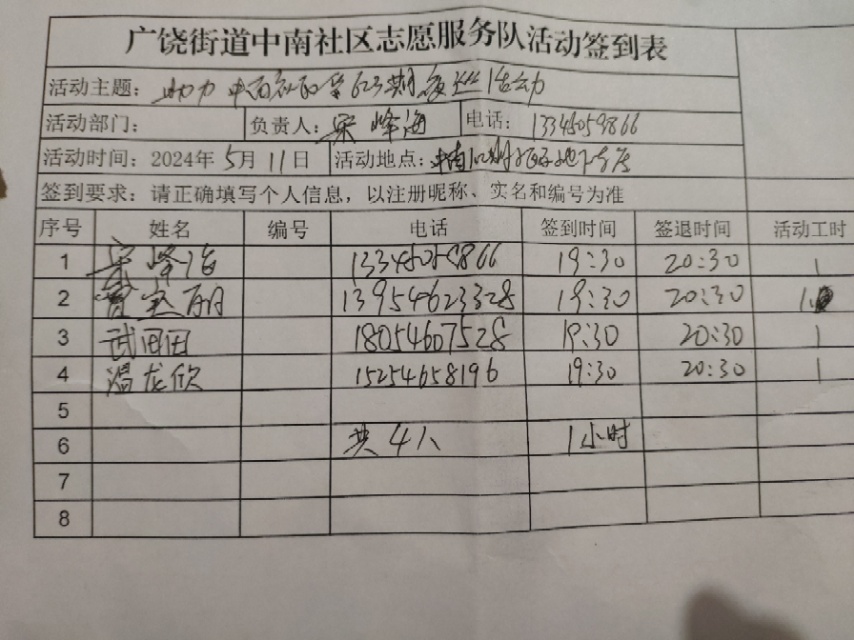 广饶街道中南社区志愿服务队活动签到表
活动主题：助力中南社区第623期夜巡活动
活动部门： 负责人：宋峰海 电话：13345059866
活动时间：2024年5月11日 活动地点：中南
签到要求：请正确填写个人信息，以注册昵称、实名和编号为准
序号 姓名 编号 电话 签到时间 签退时间 活动工时
1 宋峰海 13345059866 19:30 20:30 1
2 13954623328 19:30 20:30 1
3 武田田 18054607528 19:30 20:30 1
4 温龙欣 15254658196 19:30 20:30 1
5
6 共4人 1小时
7
8